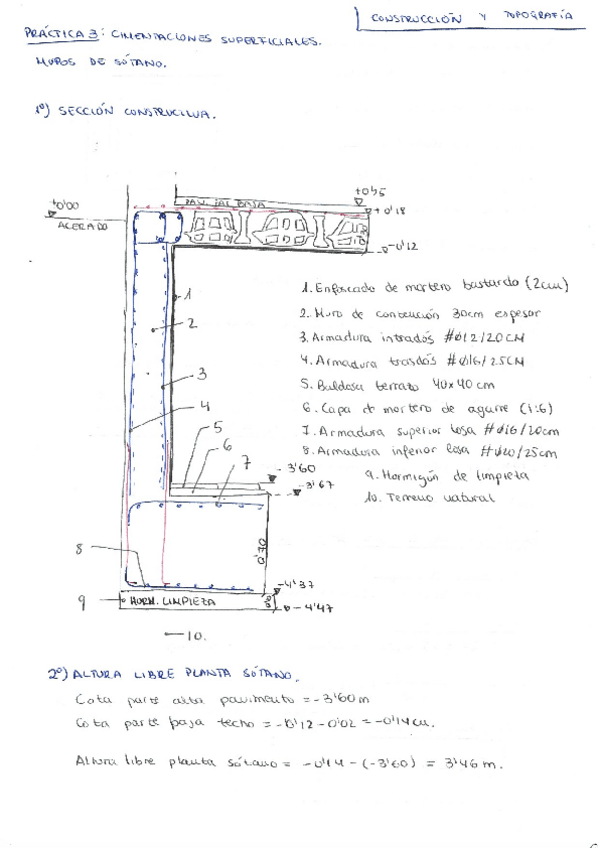 CONSTRUCCIÓN Y TOPOGRAFÍA
PRÁCTICA 3: CIMENTACIONES SUPERFICIALES.
MUROS DE SÓTANO.
1º) SECCIÓN CONSTRUCTIVA.
+0'45
PAV. PAL BAJA
±0'00
+0'18
ACERADO
-0'12
1. Enfoscado de mortero bastardo (2cm)
2. Muro de contención 30cm espesor
3. Armadura intradós #Ø12/20CM
4. Armadura trasdós #Ø16/25CM
5. Baldosa terrazo 40x40 cm
6. Capa de mortero de agarre (1:6)
7. Armadura superior losa #Ø16/20cm
8. Armadura inferior losa #Ø20/25cm
9. Hormigón de limpieza
10. Terreno natural
1
2
3
4
5
6
7
-3'60
-3'67
0'70
8
-4'37
9
HORM. LIMPIEZA
-4'47
10.
2º) ALTURA LIBRE PLANTA SÓTANO.
Cota parte alta pavimento = -3'60m
Cota parte baja techo = -0'12-0'02 = -0'14cm.
Altura libre planta sótano = -0'14 - (-3'60) = 3'46 m.